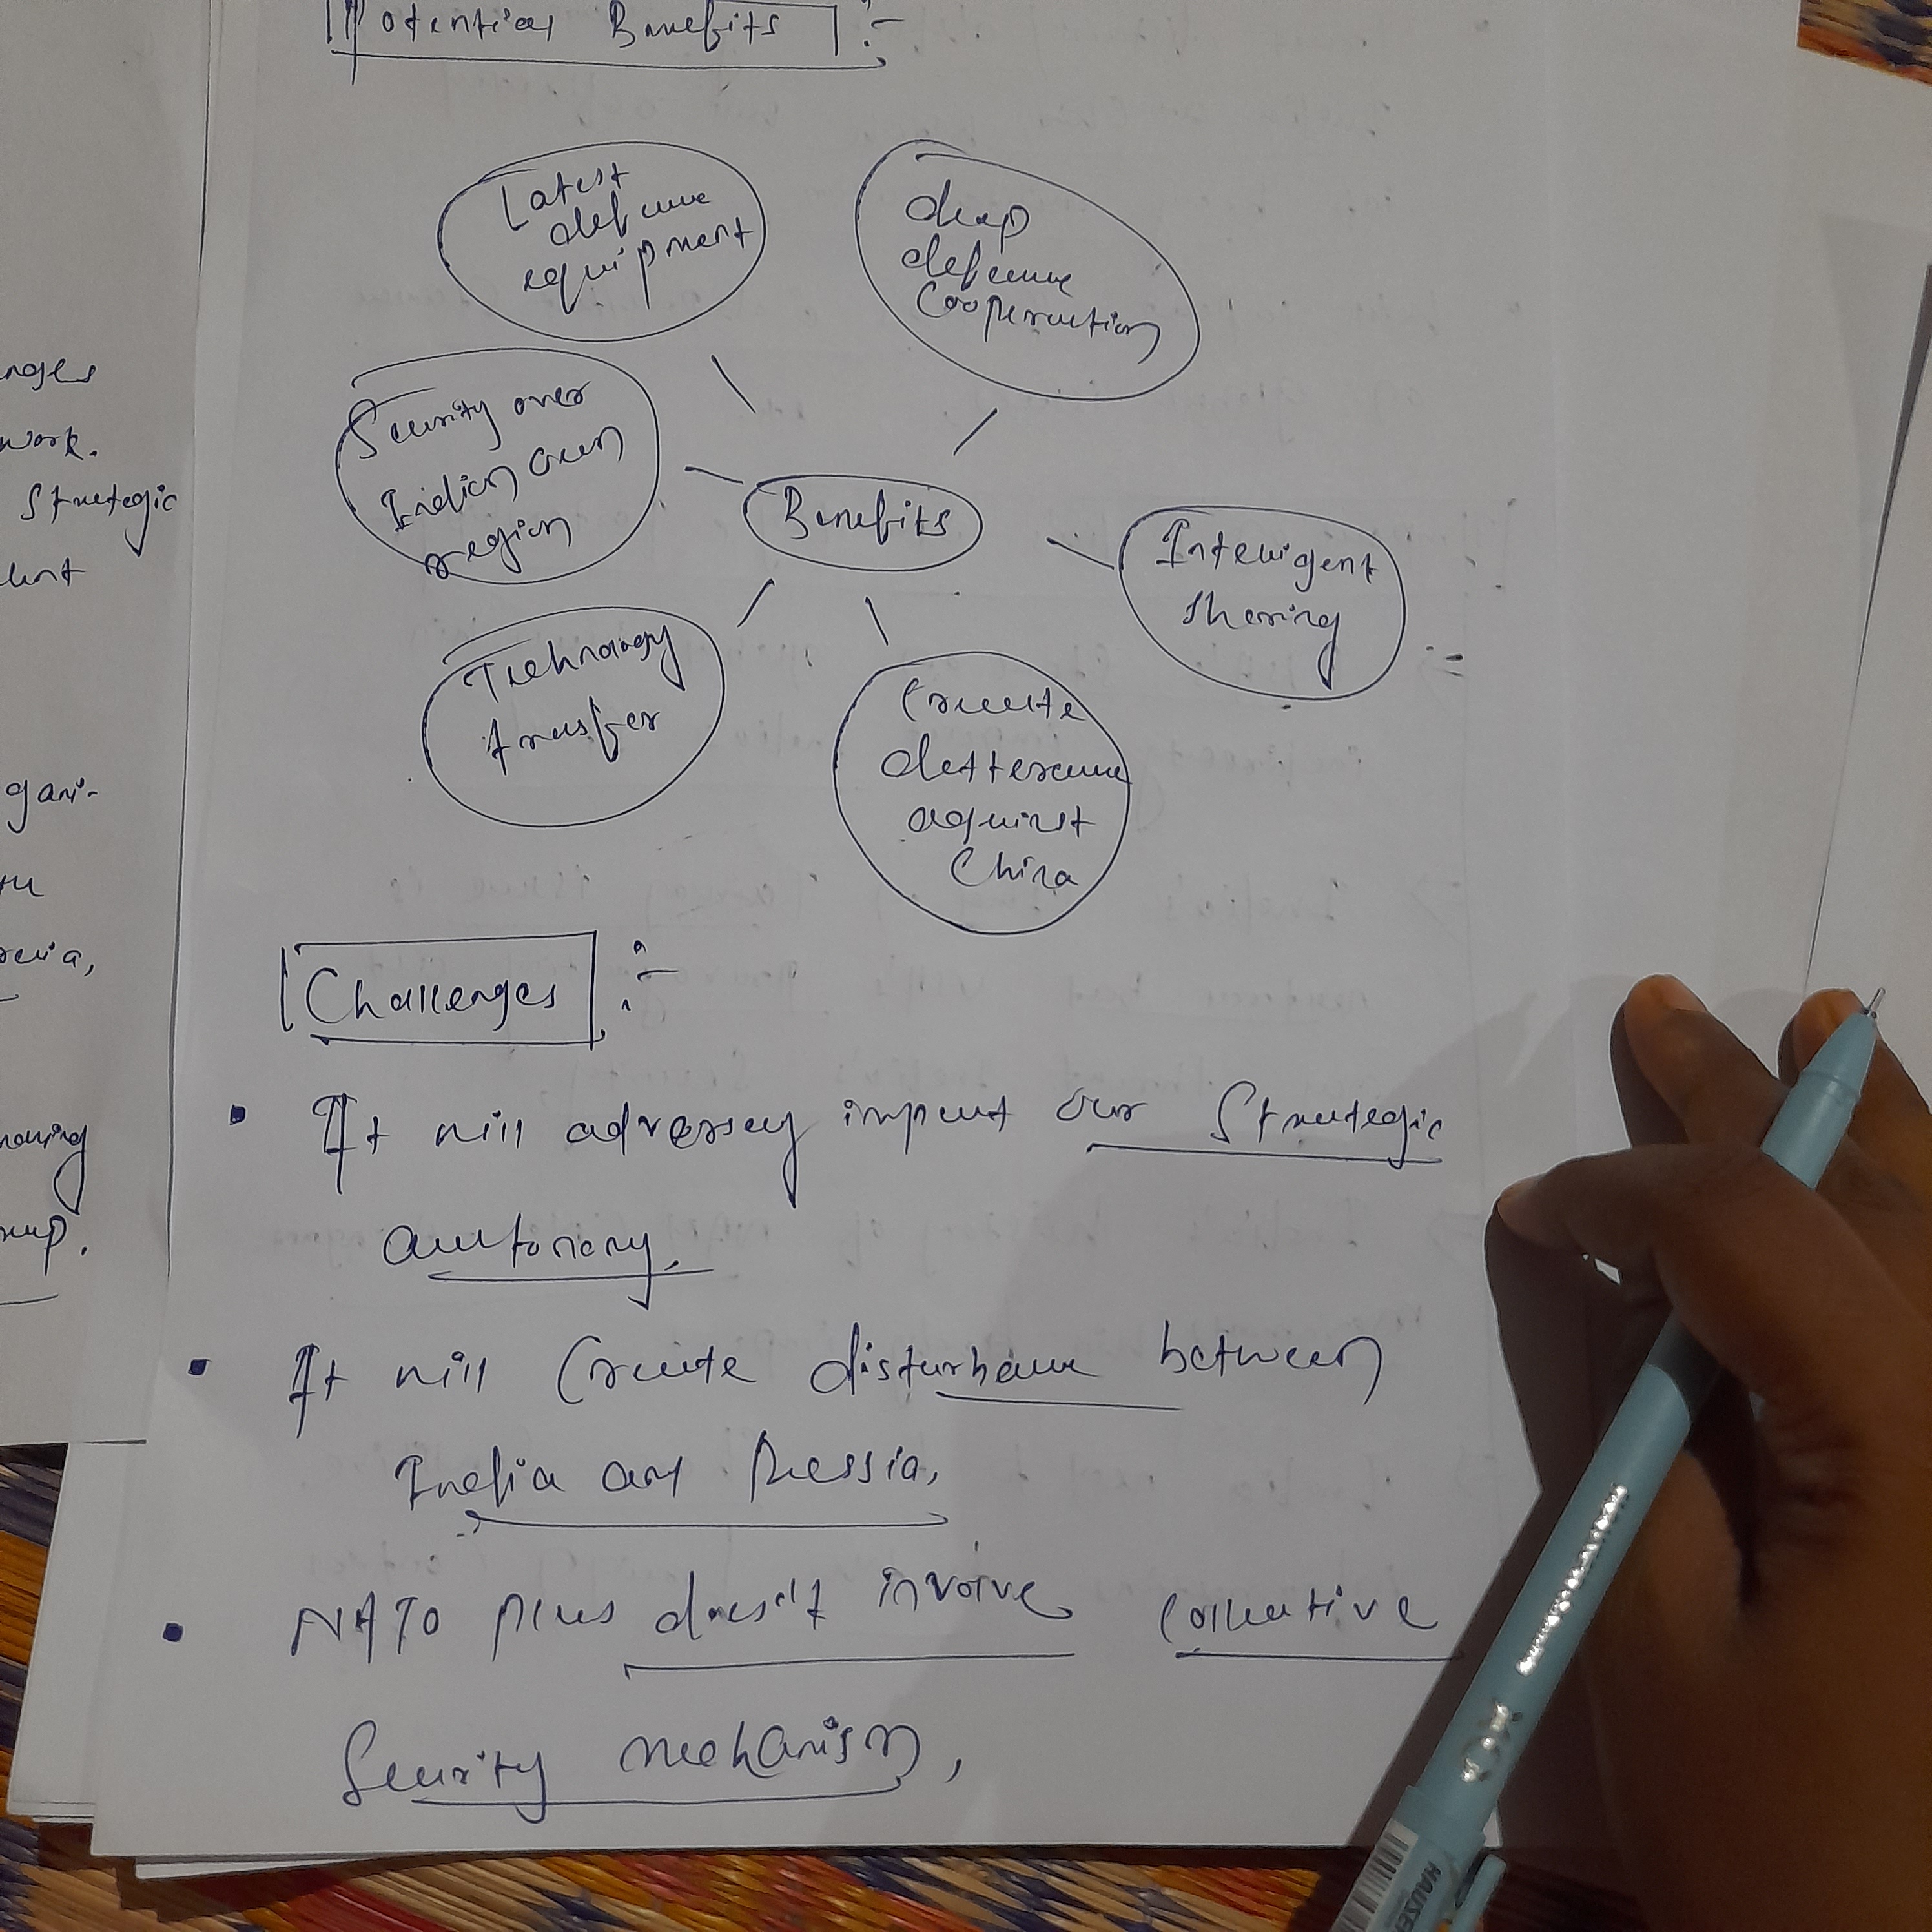 Potential Benefits :-
Latest
defence
equipment
deep
defence
Cooperation
Security over
Indian Ocean
region
Benefits
Intelligent
Sharing
Technology
transfer
Create
detterence
against
China
Challenges :-
• It will adversey impact our Strategic
autonomy.
• It will Create disturbance between
India and Russia.
• NATO plus doesn't involve collective
Security mechanism.
nges
work.
Strategic
gani-
up.
HAUSER